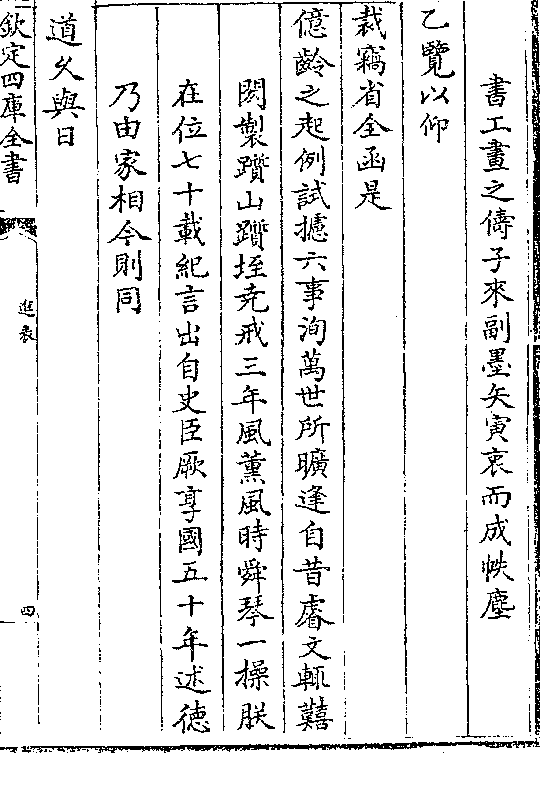 書工畫之儔子來副墨矢寅衷而成帙塵
乙覽以仰
裁竊省全函是
億齡之起例試攄六事洵萬世所曠逢自昔睿文輒囏
閎製躋山躋垤堯戒三年風薫風時舜琴一操朕
在位七十載紀言出自史臣厥享國五十年述德
乃由家相今則同
道久與日
欽定四庫全書
進表
四